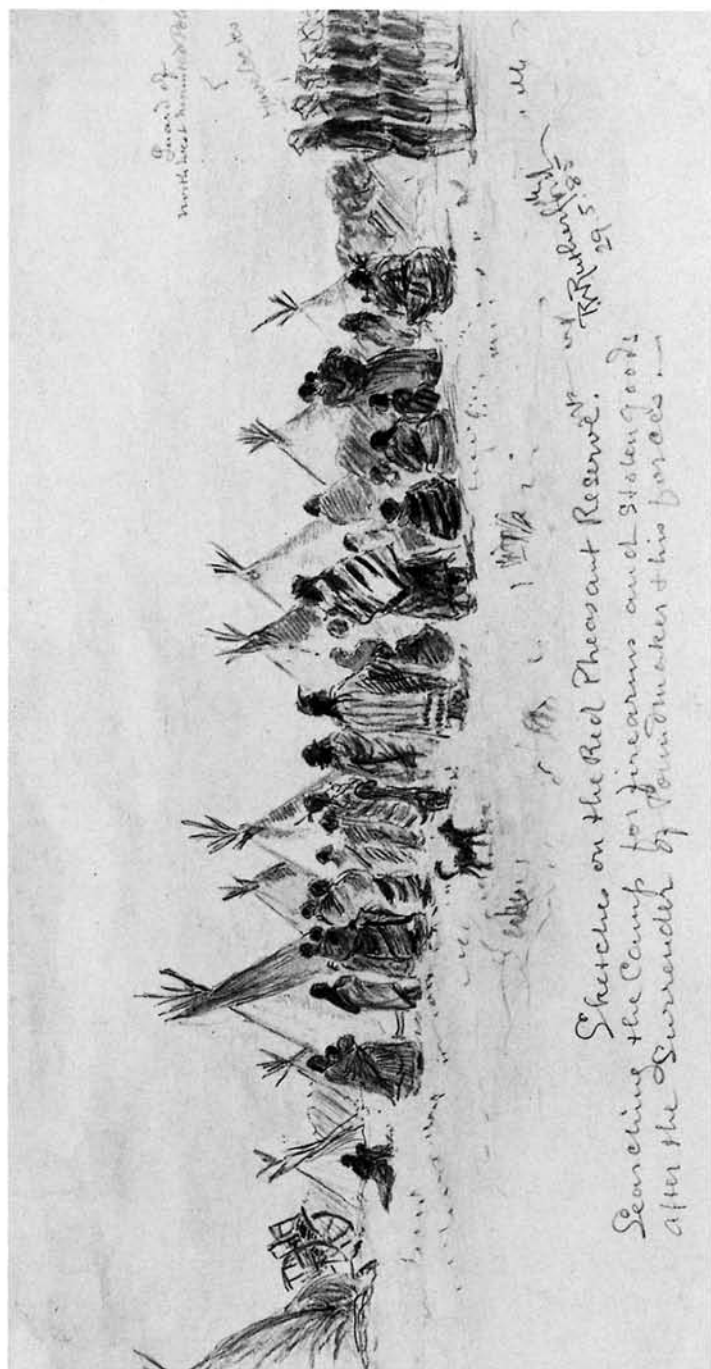 Guard of
North West Mounted Police
Sketches on the Red Pheasant Reserve.
Searching the Camp for firearms and stolen goods
after the Surrender of Poundmaker & his forces.—
R W Rutherford
29.5.85